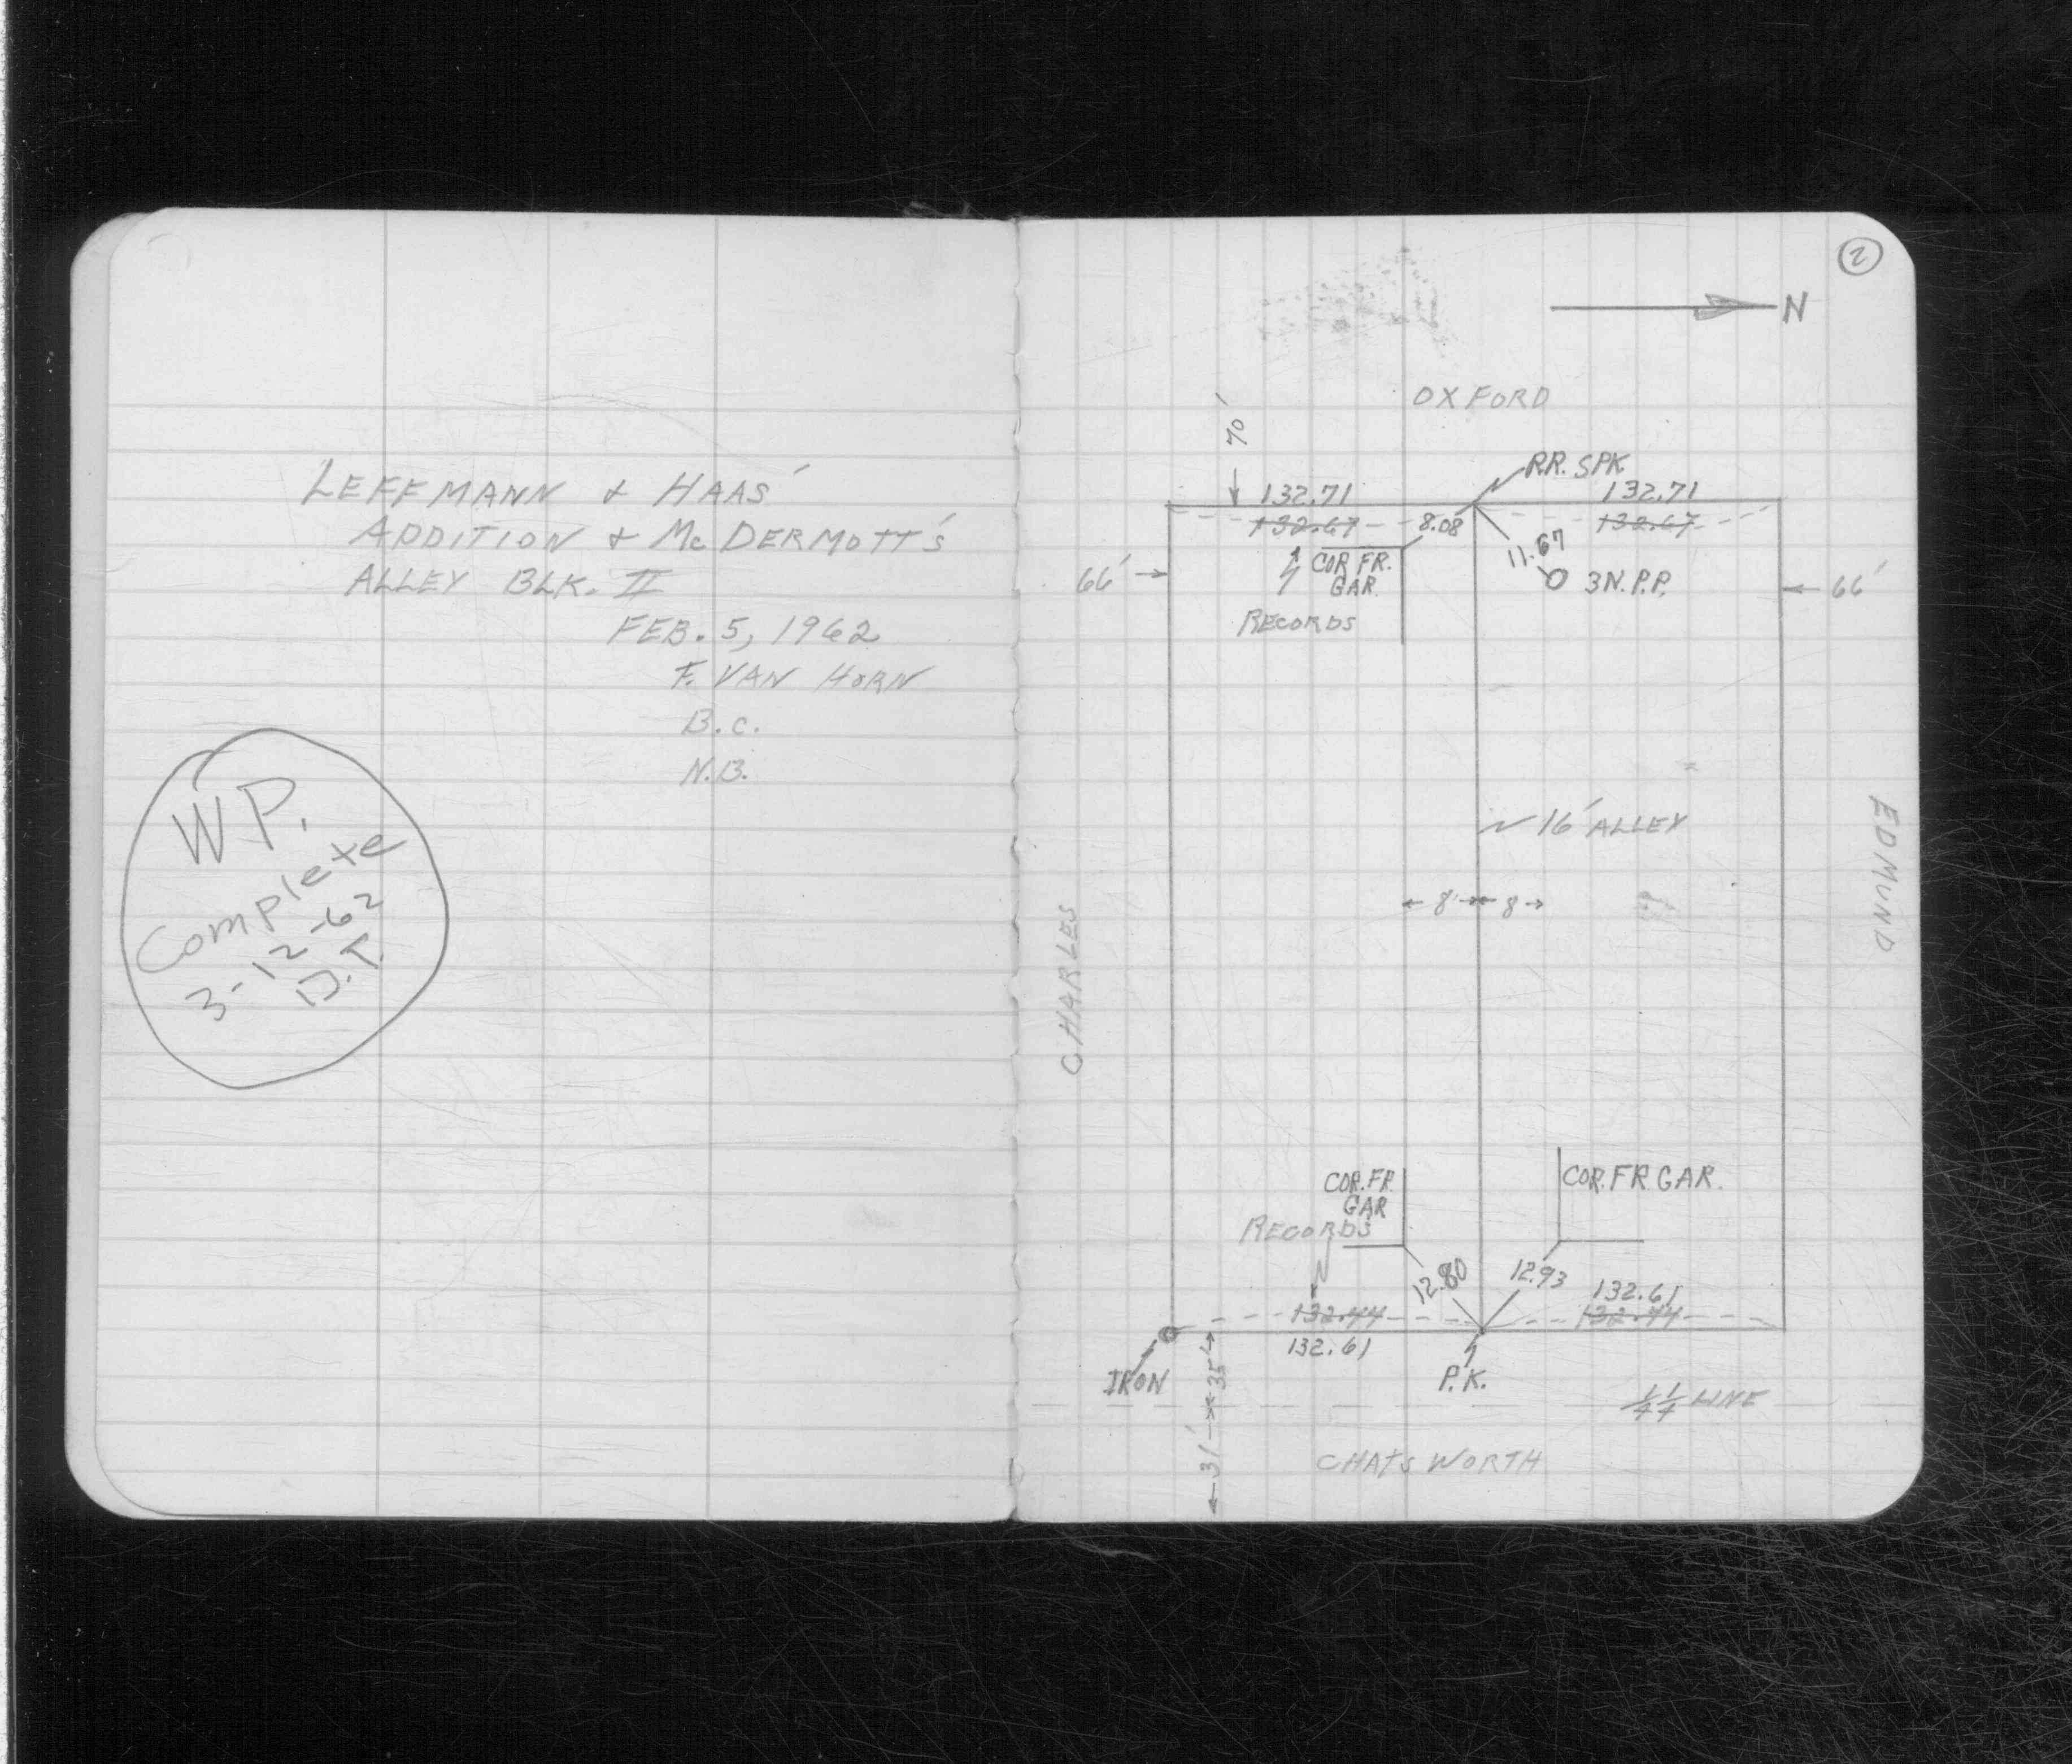 LEFFMANN & HAAS'
ADDITION & McDERMOTT'S
ALLEY BLK. II
FEB. 5, 1962
F. VAN HORN
B.C.
N.B.
W.P.
Complete
3-12-62
D.T.
2
N
OXFORD
70'
R.R. SPK
132.71
132.71
132.67
8.08
132.67
11.67
66'
COR FR.
GAR.
3 N.P.P.
66'
RECORDS
16' ALLEY
8' 8
CHARLES
EDMUND
COR. FR.
GAR
COR. FR. GAR.
RECORDS
12.80
12.93
132.61
132.44
132.44
132.61
IRON
35'
P.K.
1/4 1/4 LINE
31'
CHATSWORTH